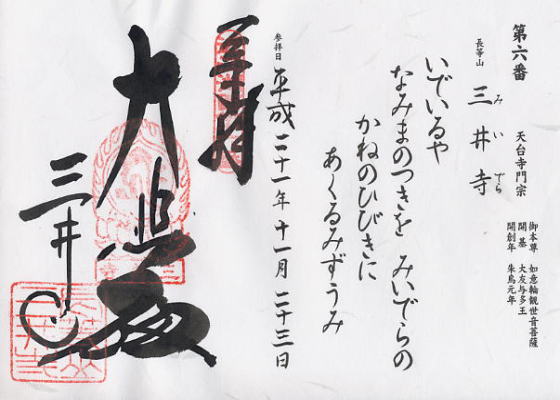 第六番
長等山 三井寺
みいでら
天台寺門宗
御本尊 如意輪観世音菩薩
開基 大友与多王
開創年 朱鳥元年
いでいるや
なみまのつきを みいでらの
かねのひびきに
あくるみずうみ
参拝日 平成二十一年 十一月 二十三日
奉拝
大悲殿
三井寺